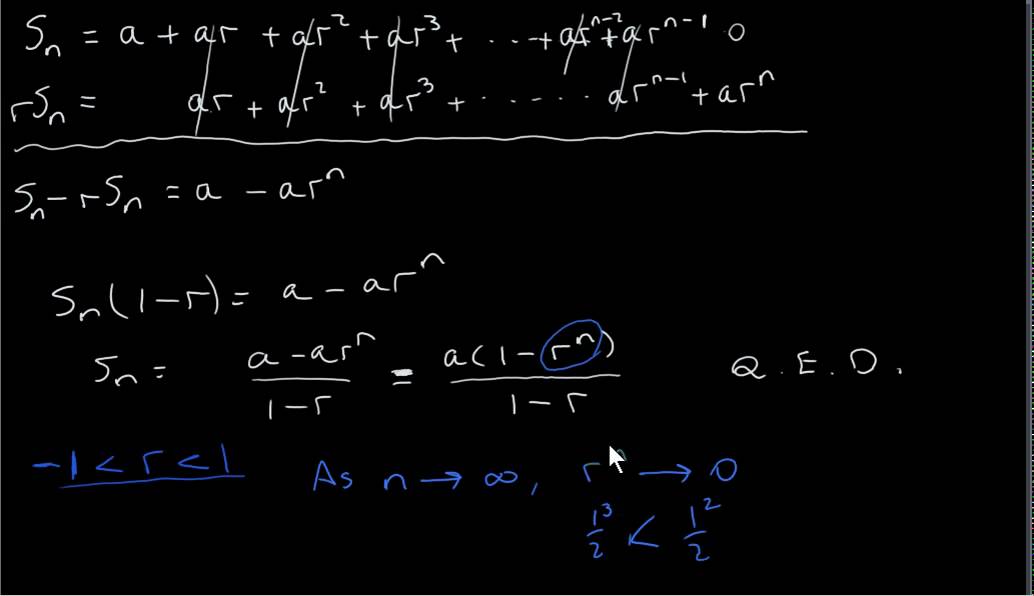 Sₙ = a + ar + ar² + ar³ + ..... + arⁿ⁻² + arⁿ⁻¹ 0
rSₙ = ar + ar² + ar³ + ...... arⁿ⁻¹ + arⁿ
Sₙ - rSₙ = a - arⁿ
Sₙ(1-r) = a - arⁿ
Sₙ = (a - arⁿ)/(1-r) = a(1-rⁿ)/(1-r) Q.E.D.
-1 < r < 1 As n → ∞, rⁿ → 0
1³/2 < 1²/2